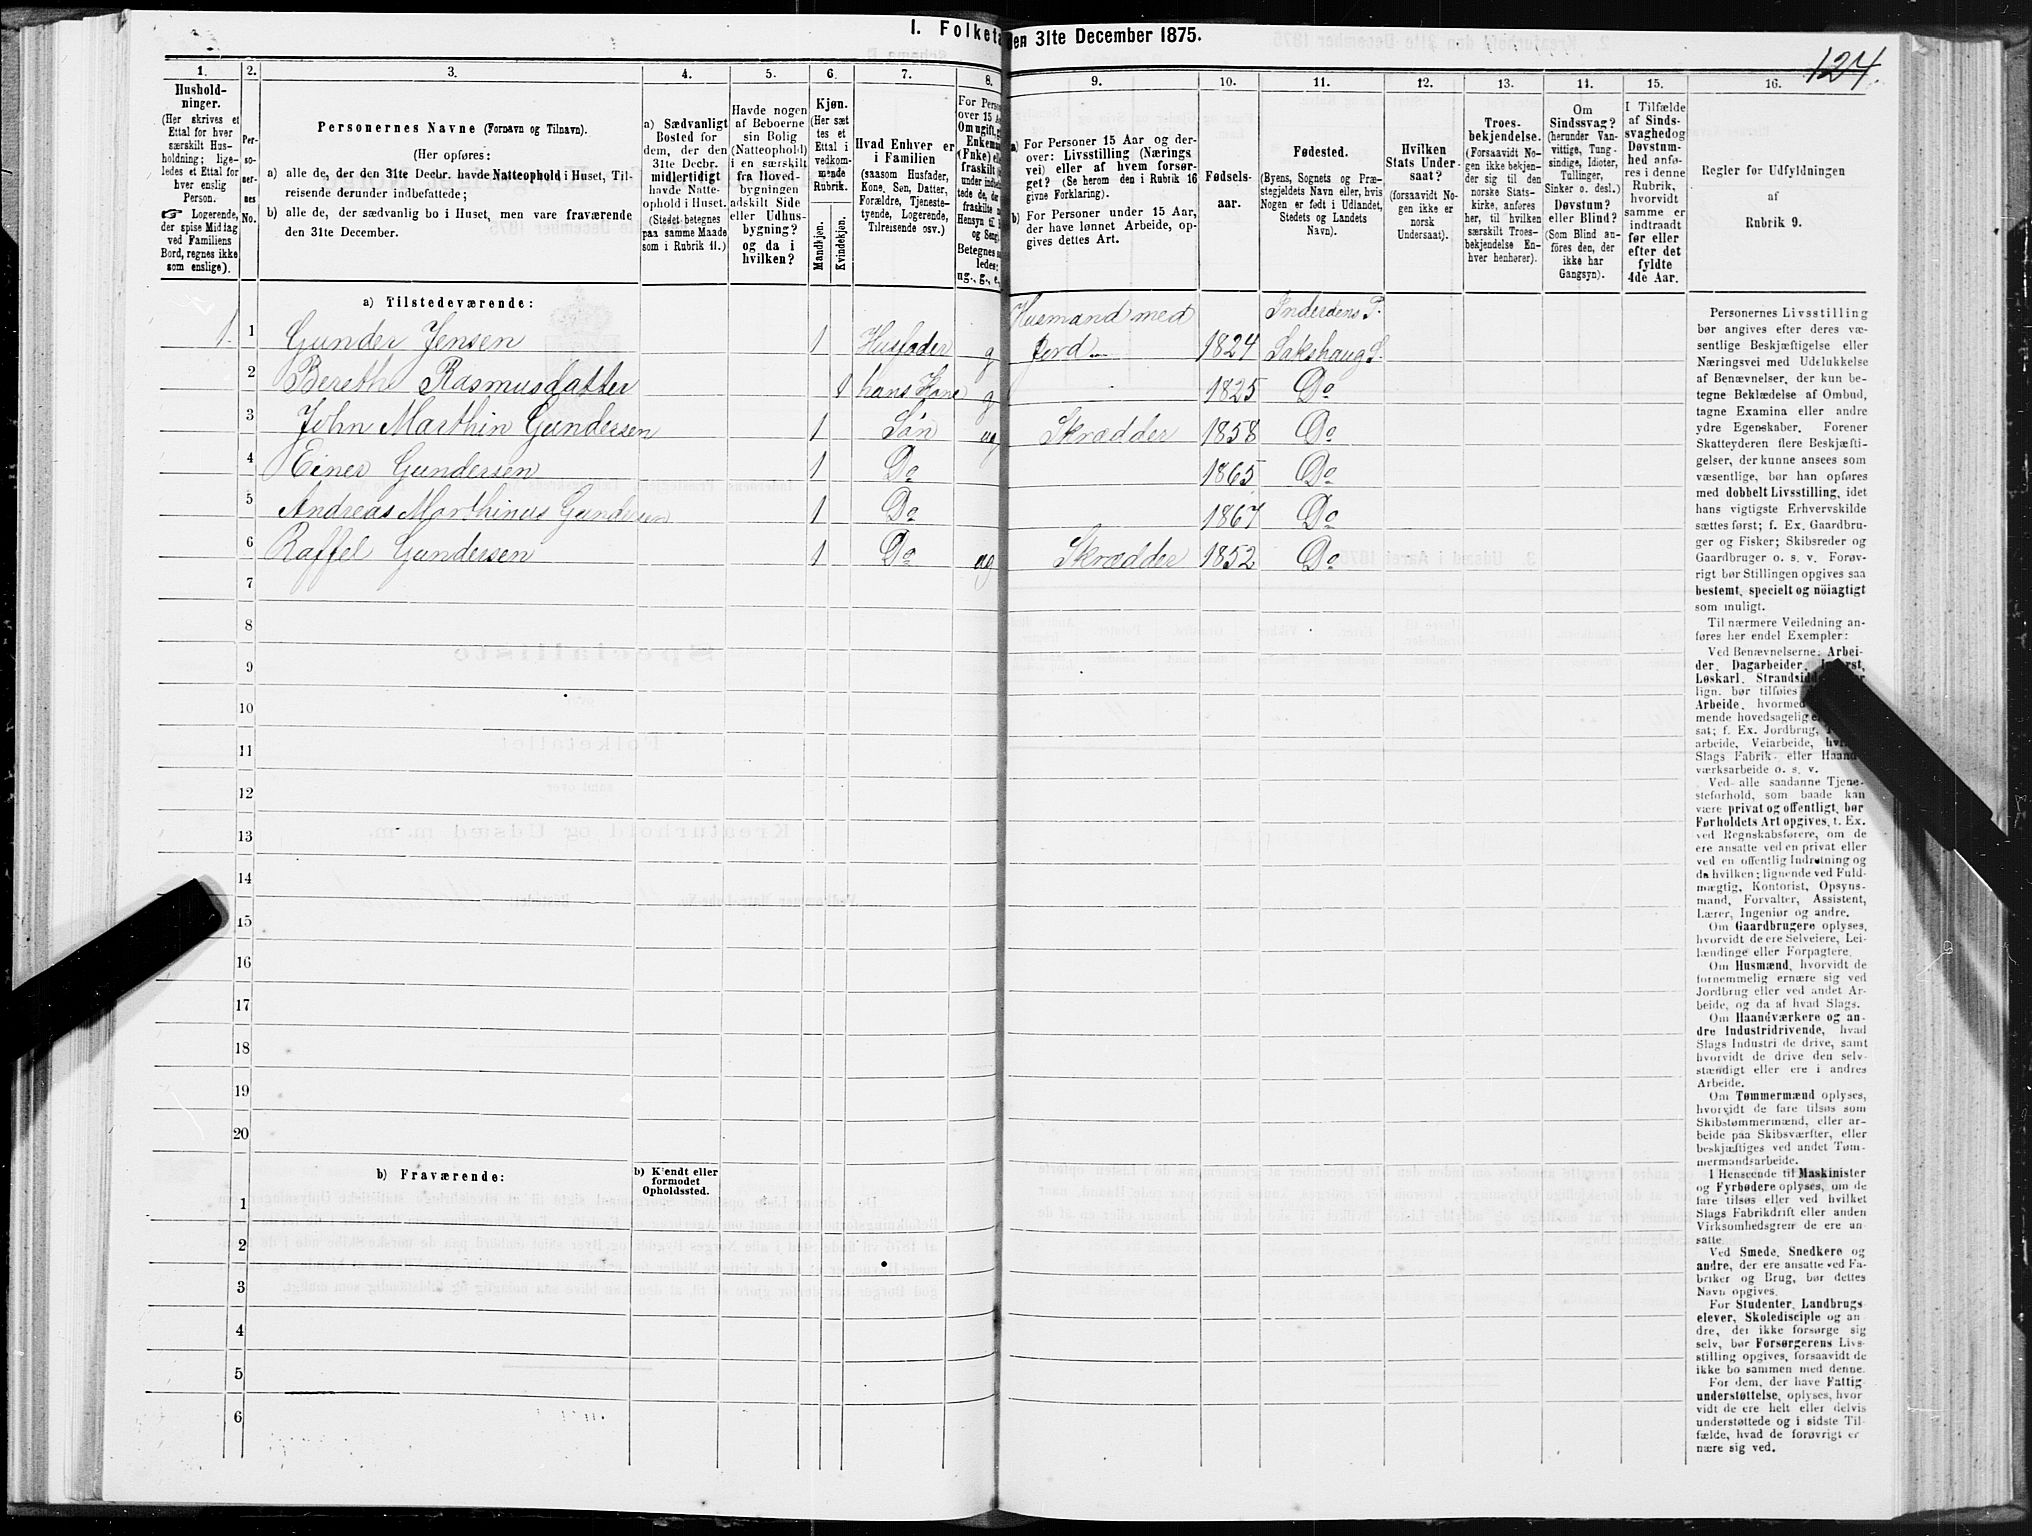 I. Folketæ
den 31te December 1875.
124.
1.
2.
3.
4.
5.
6.
7.
8.
9.
10.
11.
12.
13.
14.
15.
16.
Hushold-
ninger.
(Her skrives et
Ettal for hver
særskilt Hus-
holdning; lige-
ledes et Ettal for
hver enslig
Person.
☞ Logerende,
der spise Middag
ved Familiens
Bord, regnes ikke
som enslige).
Per-
so-
ner-
nes
No.
Personernes Navne (Fornavn og Tilnavn).
(Her opføres:
a) alle de, der den 31te Decbr. havde Natteophold i Huset, Til-
reisende derunder indbefattede;
b) alle de, der sædvanlig bo i Huset, men vare fraværende
den 31te December.
a) Sædvanligt
Bosted for
dem, der den
31te Decbr.
midlertidigt
havde Natte-
ophold i Huset.
(Stedet betegnes
paa samme Maade
som i Rubrik 11.)
Havde nogen
af Beboerne
sin Bolig
(Natteophold)
i en særskilt
fra Hoved-
bygningen
adskilt Side
eller Udhus-
bygning?
og da i
hvilken?
Kjøn.
(Her sæt
tes et
Ettal i
vedkom-
mende
Rubrik.
Mandkjøn.
Kvindekjøn.
Hvad Enhver er
i Familien
(saasom Husfader,
Kone, Søn, Datter,
Forældre, Tjeneste-
tyende, Logerende,
Tilreisende osv.)
For Perso
over 15 Aa
Om ugift, g
Enkeman
(Enke) elle
fraskilt
under indbe
tede de, de
fraskilte
Hensyn til
og Seng
Betegnes s
ledes:
ug., g., e.,
a) For Personer 15 Aar og der-
over: Livsstilling (Nærings
vei) eller af hvem forsør-
get? (Se herom den i Rubrik 16
givne Forklaring).
b) For Personer under 15 Aar,
der have lønnet Arbeide, op-
gives dettes Art.
Fødsels-
aar.
Fødested.
(Byens, Sognets og Præ-
stegjeldets Navn eller, hvis
Nogen er født i Udlandet,
Stedets og Landets
Navn).
Hvilken
Stats Under-
saat?
(forsaavidt No-
gen ikke er
norsk
Undersaat).
Troes-
bekjendelse.
(Forsaavidt No-
gen ikke bekjen-
der sig til den
norske Stats-
kirke, anføres
her, til hvilken
særskilt Troes-
bekjendelse En-
hver henhører).
Om
Sindssvag?
(herunder Van-
vittige, Tung-
sindige, Idioter,
Tullinger,
Sinker o. desl.)
Døvstum?
eller Blind?
(Som Blind an-
føres den, der
ikke har
Gangsyn).
I Tilfælde
af Sinds-
svaghed og
Døvstum-
hed anfø-
res i denne
Rubrik,
hvorvidt
samme er
indtraadt
før eller
efter det
fyldte
4de Aar.
Regler for Udfyldningen
af
Rubrik 9.
a) Tilstedeværende:
1 1 Gunder Jensen 1 Husfader g Husmand med Jord 1824 Inderøens P. Sakshaug S.
2 Berethe Rasmusdatter 1 hans Kone g 1825 Do
3 John Marthin Gundersen 1 Søn ug Skrædder 1858 Do
4 Einer Gundersen 1 Do 1865 Do
5 Andreas Marthinus Gundersen 1 Do 1867 Do
6 Raffel Gundersen 1 Do ug Skrædder 1852 Do
7
8
9
10
11
12
13
14
15
16
17
18
19
20
b) Fraværende:
b) Kjendt eller
formodet
Opholdssted.
1
2
3
4
5
6
Personernes Livsstilling
bør angives efter deres væ-
sentlige Beskjæftigelse eller
Næringsvei med Udelukkelse
af Benævnelser, der kun be-
tegne Beklædelse af Ombud,
tagne Examina eller andre
ydre Egenskaber. Forener
Skatteyderen flere Beskjæfti-
gelser, der kunne ansees som
væsentlige, bør han opføres
med dobbelt Livsstilling, idet
hans vigtigste Erhvervskilde
sættes først; f. Ex. Gaardbru-
ger og Fisker; Skibsreder og
Gaardbruger o. s. v. Forøv-
rigt bør Stillingen opgives saa
bestemt, specielt og nöiagtigt
som muligt.
Til nærmere Veiledning an-
føres her endel Exempler:
Ved Benævnelserne: Arbei-
der, Dagarbeider, Inderst,
Løskarl, Strandsidder eller
lign. bør tilføies
Arbeide, hvormed
mende hovedsagelig er
sat; f. Ex. Jordbrug,
arbeide, Veiarbeide, hvilket
Slags Fabrik- eller Haand-
værksarbeide o. s. v.
Ved alle saadanne Tjene-
steforhold, som baade kan
være privat og offentligt, bør
Forholdets Art opgives, t. Ex.
ved Regnskabsførere, om de
ere ansatte ved en privat eller
ved en offentlig Indretning og
da hvilken; lignende ved Fuld-
mægtig, Kontorist, Opsyns-
mand, Forvalter, Assistent,
Lærer, Ingeniør og andre.
Om Gaardbrugere oplyses,
hvorvidt de ere Selveiere, Lei-
lændinge eller Forpagtere.
Om Husmænd, hvorvidt de
fornemmelig ernære sig ved
Jordbrug eller ved andet Ar-
beide, og da af hvad Slags.
Om Haandværkere og an-
dre Industridrivende, hvad
Slags Industri de drive, samt
hvorvidt de drive den selv-
stændigt eller ere i andres
Arbeide.
Om Tømmermænd oplyses,
hvorvidt de fare tilsøs som
Skibstømmermænd, eller ar-
beide paa Skibsværfter, eller
beskjæftiges ved andet Tøm-
mermandsarbeide.
I Henseende til Maskinister
og Fyrbødere oplyses, om de
fare tilsøs eller ved hvilket
Slags Fabrikdrift eller anden
Virksomhedsgren de ere an-
satte.
Ved Smede, Snedkere og
andre, der ere ansatte ved Fa-
briker og Brug, bør dettes
Navn opgives.
For Studenter, Landbrugs
elever, Skoledisciple og an-
dre, der ikke forsørge sig
selv, bør Forsørgerens Livs-
stilling opgives, forsaavidt de
ikke bo sammen med denne.
For dem, der have Fattig
understøttelse, oplyses, hvor
vidt de ere helt eller delvis
understøttede og i sidste Til-
fælde, hvad de forøvrigt er
nære sig ved.